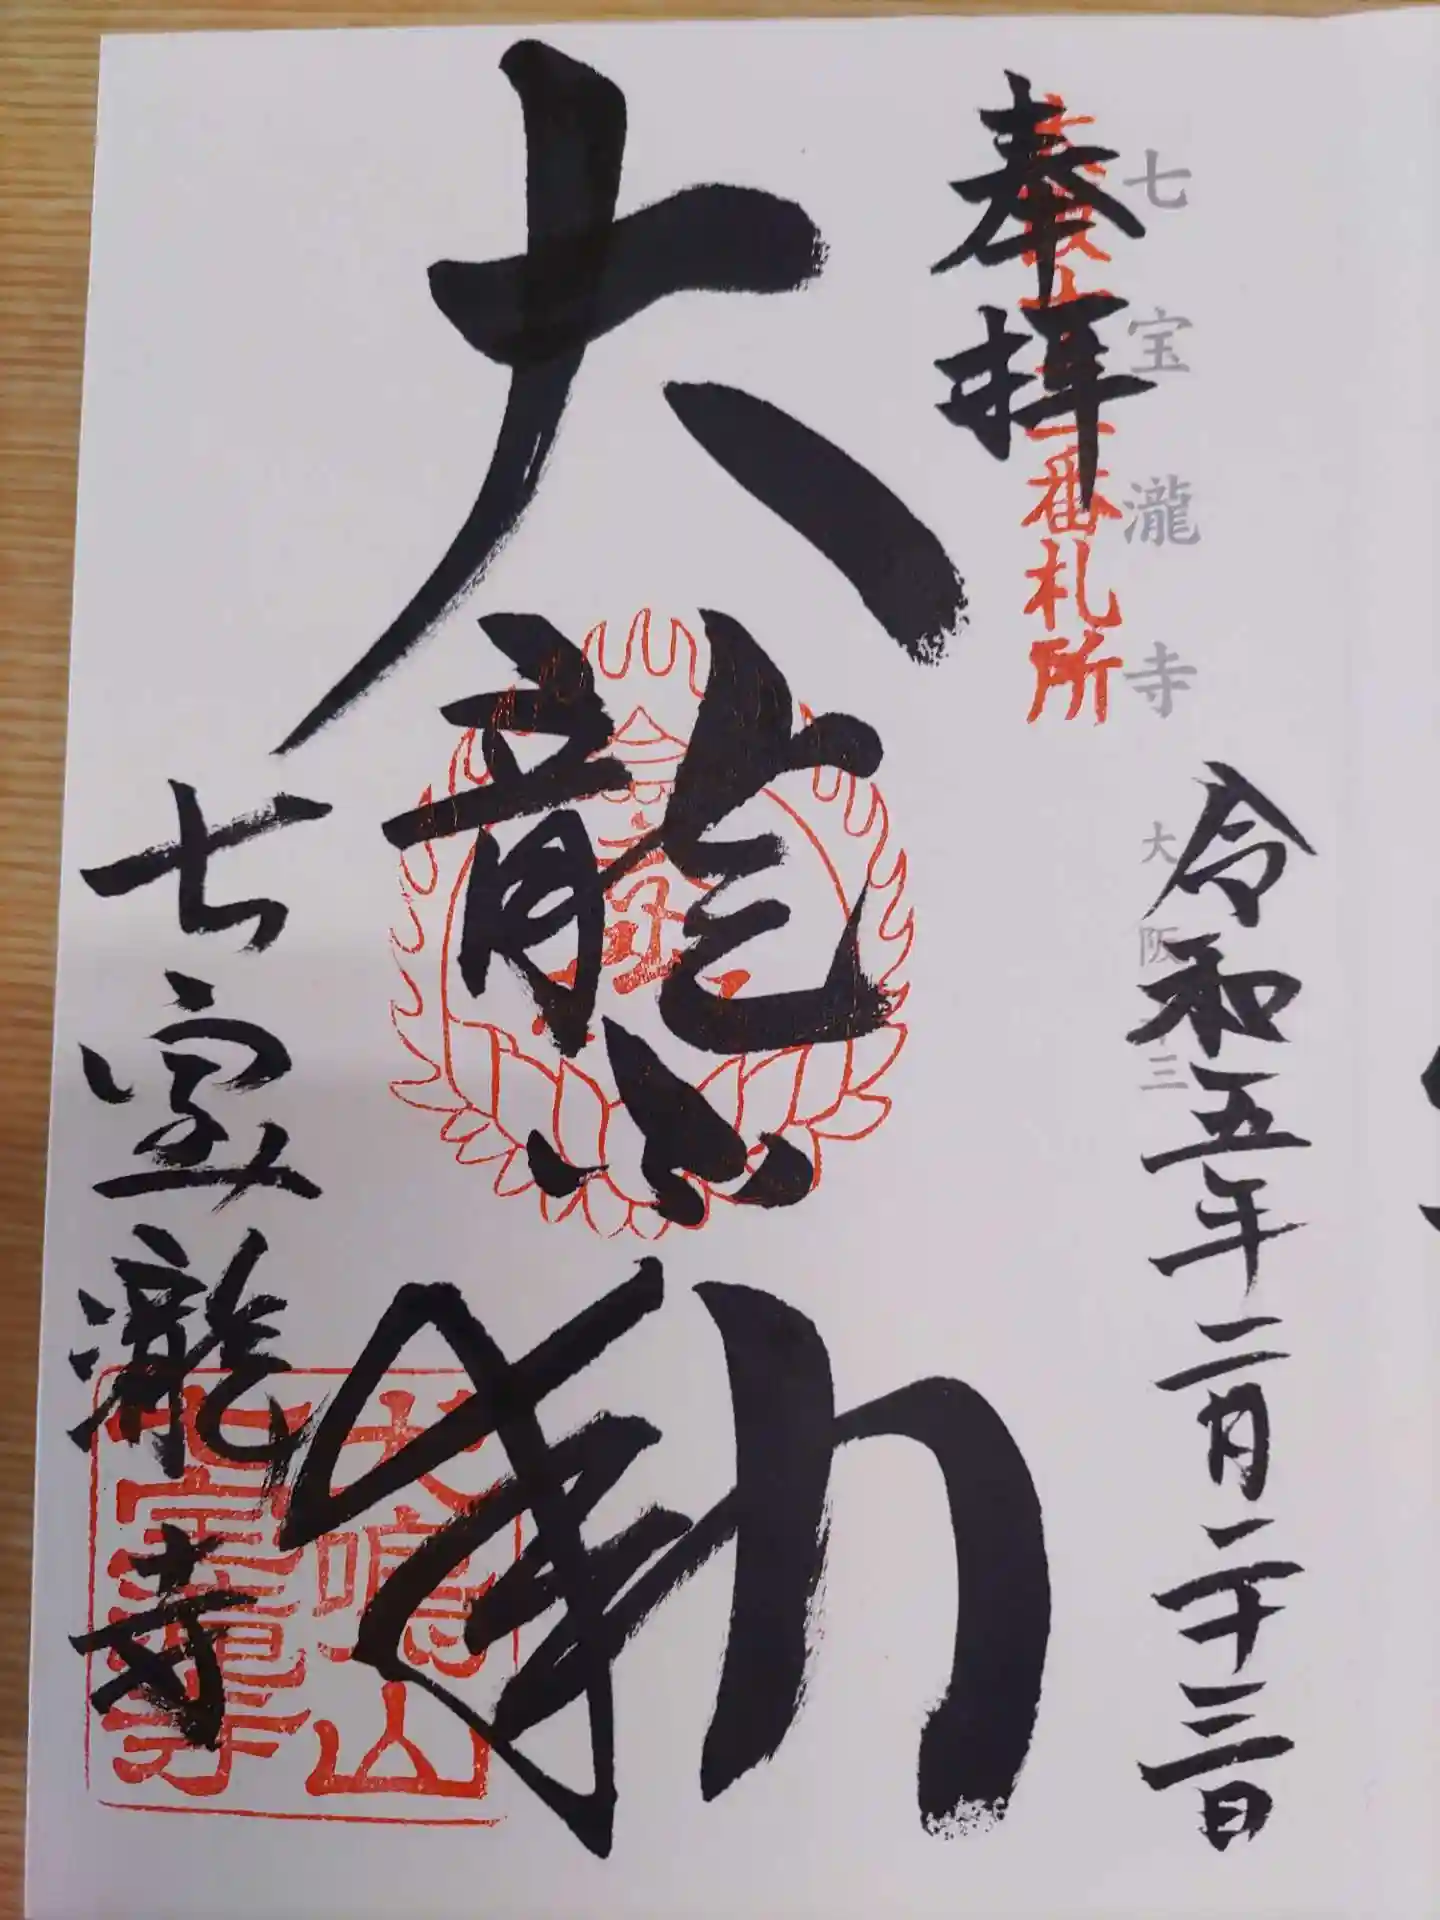 七宝瀧寺
大阪十三
奉拝
番札所
令和五年二月二十三日
大龍不動
七宝瀧寺
犬鳴山
七宝瀧寺